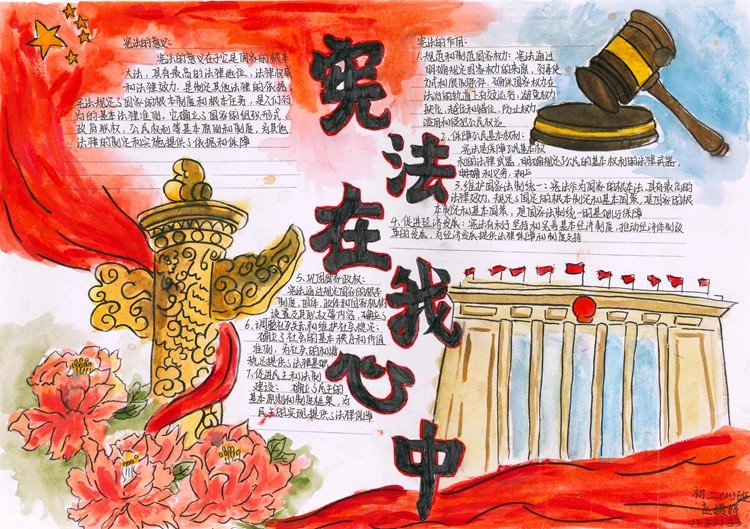 宪法在我心中
宪法的意义:
宪法的意义在于它是国家的根本
大法,具有最高的法律地位、法律权威
和法律效力,是制定其他法律的依据。
宪法规定了国家的根本制度和根本任务,是人们行
为的基本法律准则,它确立了国家的组织形式、
政府职权、公民权利等基本原则和制度,为其他
法律的制定和实施提供了依据和保障
宪法的作用:
1.规范和制约国家权力:宪法通过
明确规定国家权力的来源、行使
方式和限制条件,确保国家权力在
法治的轨道上有效运行,避免权力
缺位、越位和错位,防止权力
滥用和侵犯公民权益
2.保障公民基本权利:
宪法是保障公民基本权
利的法律武器,明确规定公民的基本权利的法律武器,
明确和义务,
3.维护国家法制统一:宪法作为国家的根本法,具有最高的
法律效力,规定了国家的根本制度和基本国策,是国家的根
本制度和基本国策,是国家法制统一的基础与保障
4.促进经济发展:宪法有利于坚持和完善基本经济制度,推动经济体制改
革的发展,为经济发展提供法律保障和制度支持
5.巩固国家政权:
宪法通过规定国家的根本
制度、国体、政体和国家机构
设置及其职权等内容,确立了
6.调整社会关系和维护社会稳定:
确立了社会的基本秩序和价值
准则,为社会的和谐
稳定提供了法律基础
7.促进民主和法制
建设:确立了民主的
基本原则和制度框架,为
民主的实现提供了法律保障
初二